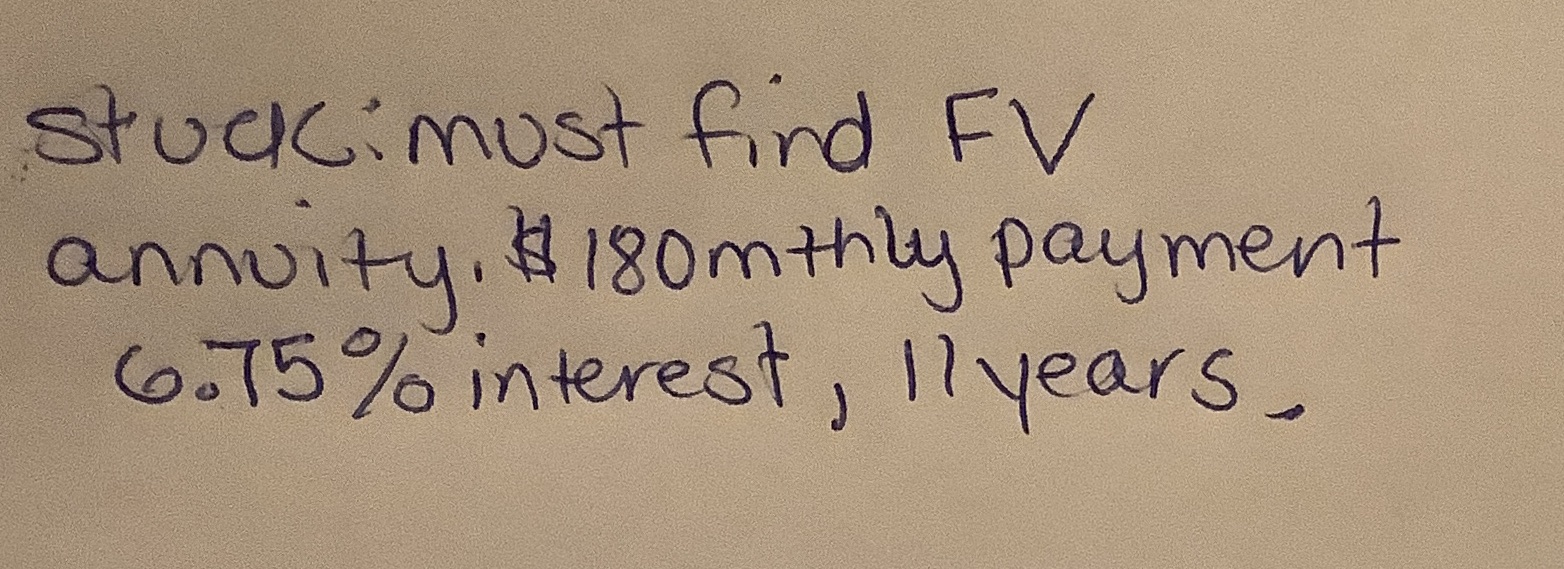 stuck: must find FV
annuity. $180 mthly payment
6.75% interest, 11 years.